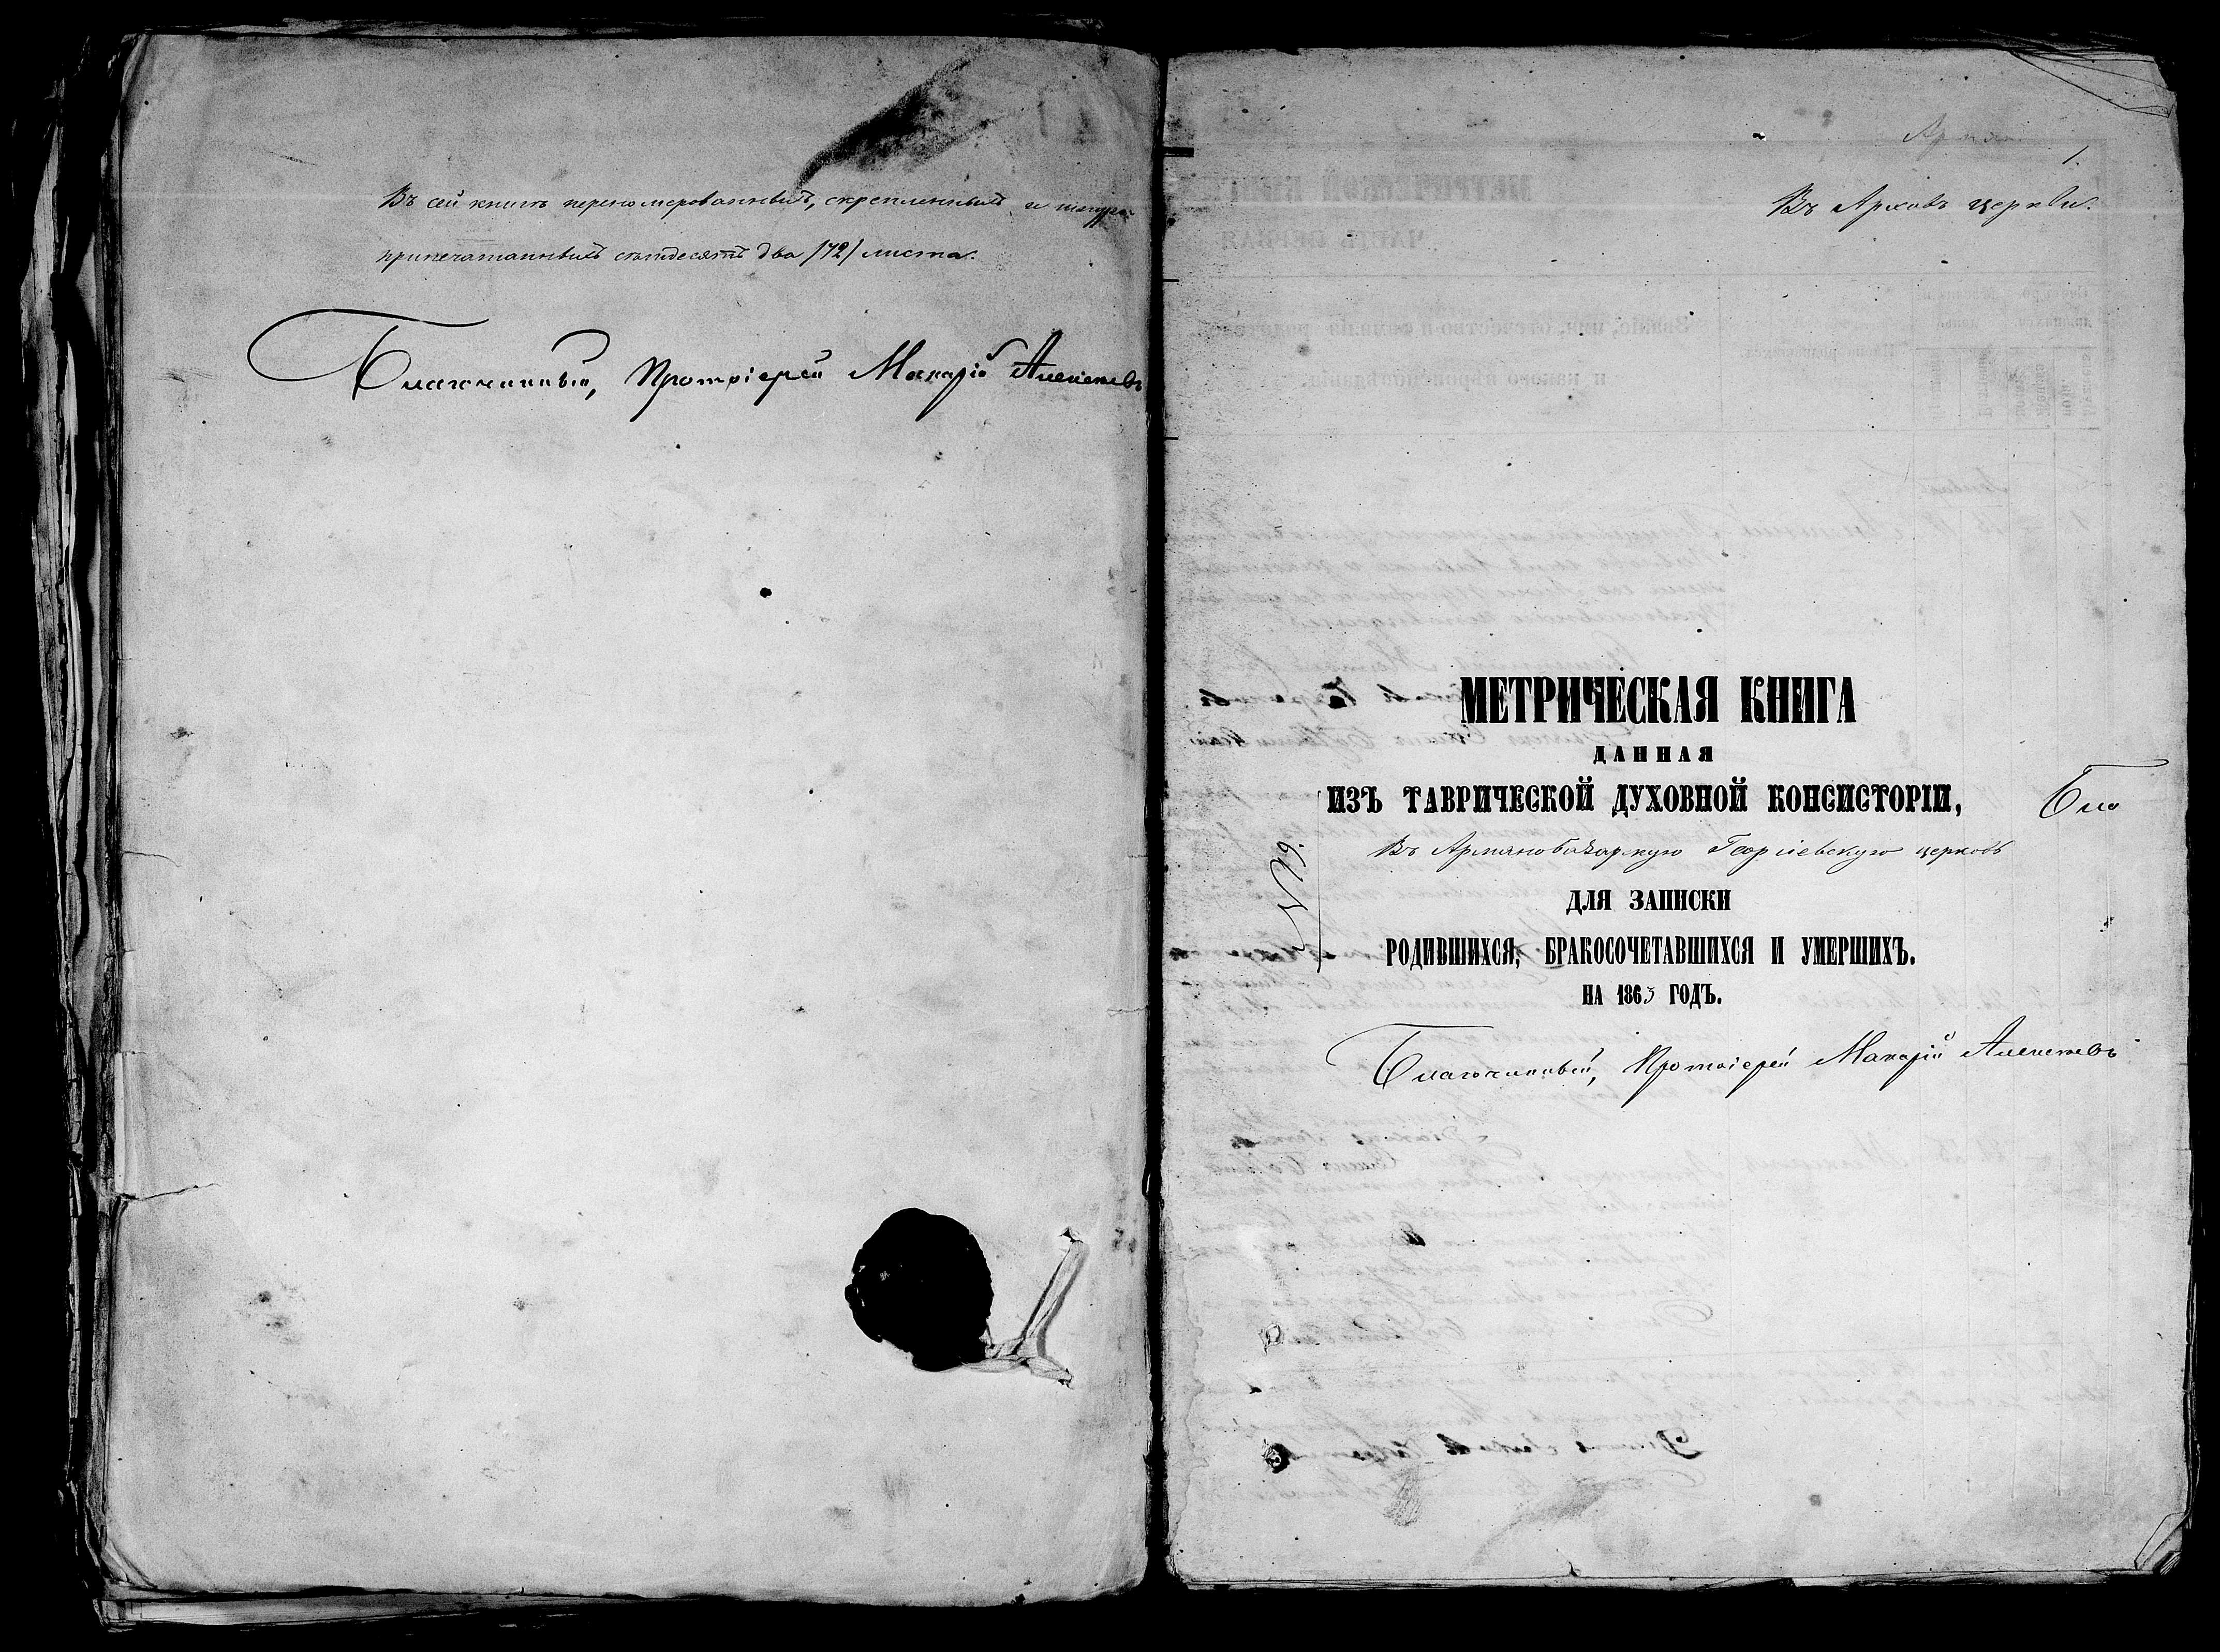 Въ сей книгѣ перенумерованныхъ, скрепленныхъ и шнуро-
припечатанныхъ семдесятъ два /72/ листа.
Благочинный, Протоіерей Макарій Алексѣевъ
1.
Въ Архивъ церкви.
МЕТРИЧЕСКАЯ КНИГА
ДАННАЯ
ИЗЪ ТАВРИЧЕСКОЙ ДУХОВНОЙ КОНСИСТОРІИ,
Бла
Въ Армянобазарскую Георгіевскую церковь
№ 19.
ДЛЯ ЗАПИСКИ
РОДИВШИХСЯ, БРАКОСОЧЕТАВШИХСЯ И УМЕРШИХЪ.
НА 1863 ГОДЪ.
Благочинный, Протоіерей Макарій Алексѣевъ